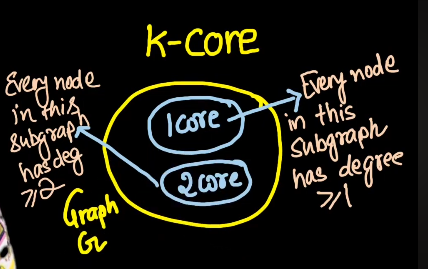 k-core
Every node
in this
subgraph
has deg
≥2
1core
2core
Every node
in this
subgraph
has degree
≥1
Graph
G